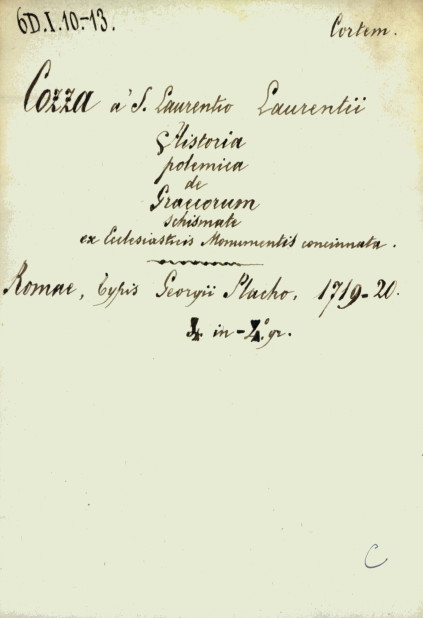 6D.I.10.-13.
Cortem.
Cozza a' S. Laurentio Laurentii
Historia
polemica
de
Graecorum
schismate
ex Ecclesiasticis Monumentis concinnata.
Romae, typis Georgii Placho, 1719-20.
4. in-4.o gr.
C